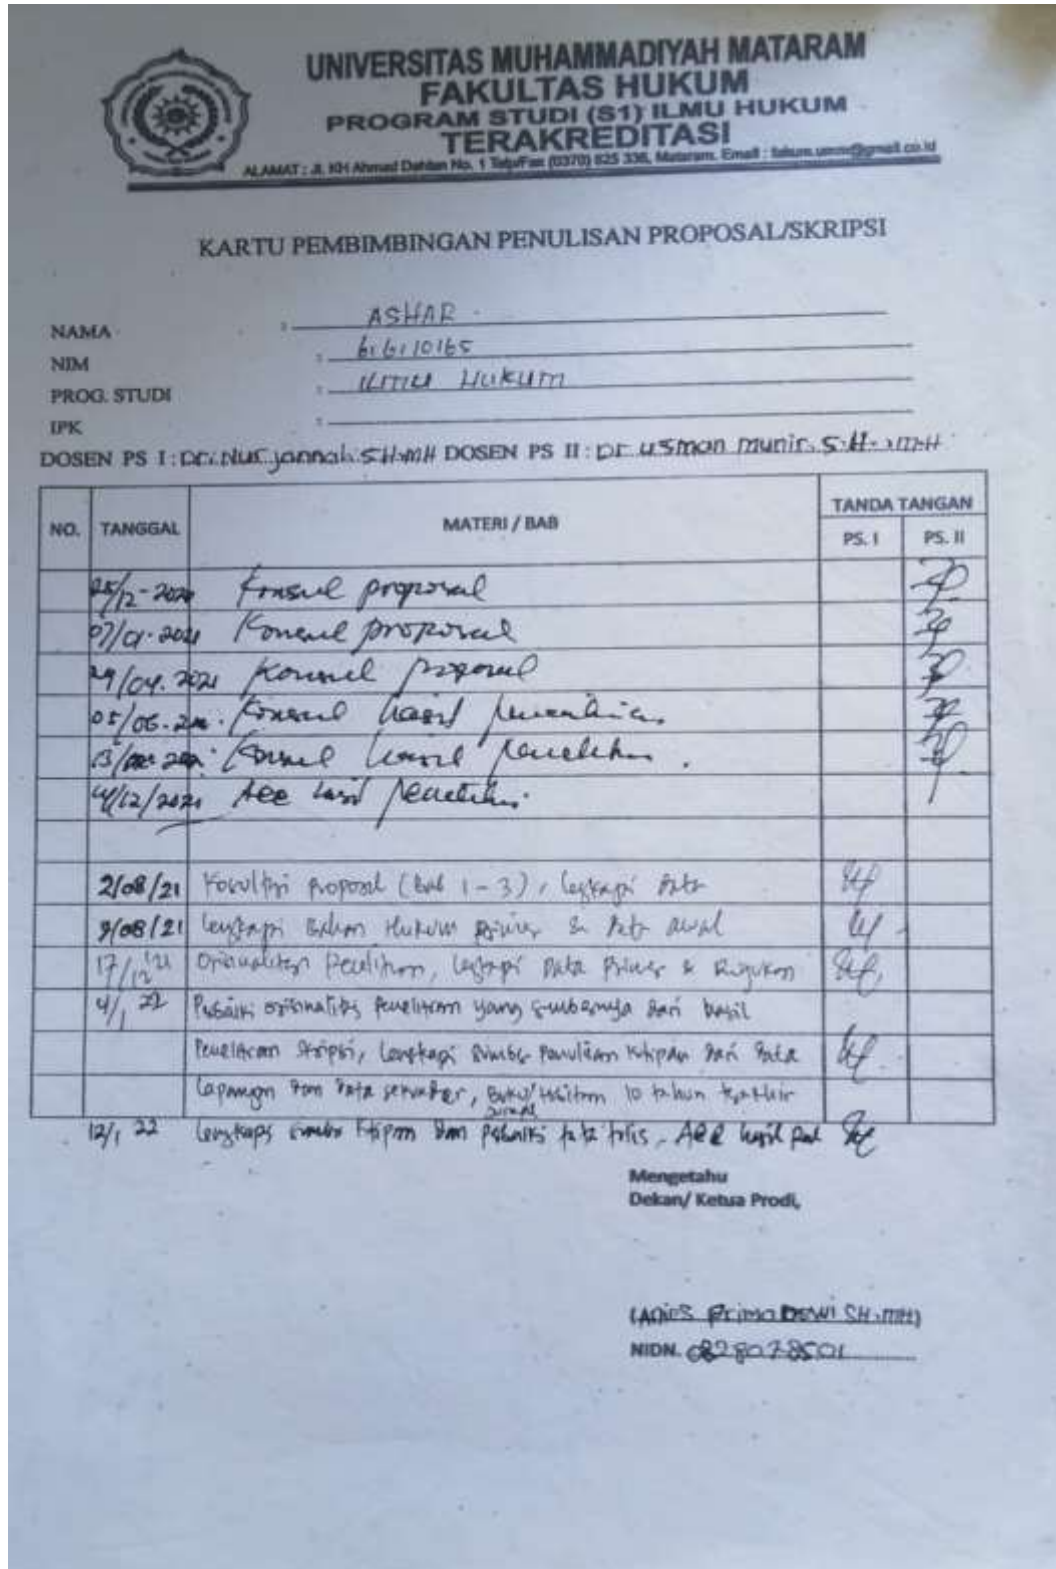 UNIVERSITAS MUHAMMADIYAH MATARAM
FAKULTAS HUKUM
PROGRAM STUDI (S1) ILMU HUKUM
TERAKREDITASI
ALAMAT : Jl. KH Ahmad Dahlan No. 1 Telp/Fax (0370) 625 336, Mataram. Email :
KARTU PEMBIMBINGAN PENULISAN PROPOSAL/SKRIPSI
NAMA : ASHAR
NIM : 616110165
PROG. STUDI : ILMU HUKUM
IPK :
DOSEN PS I : Dr. Nur jannah. SH.MH DOSEN PS II : Dr usman munir. S.H..M.H
NO. TANGGAL MATERI / BAB TANDA TANGAN
PS. I PS. II
Konsul proposal
07/01-2021 Konsul proposal
29/04.2021 Konsul proposal
05/06- Konsul hasil penelitian
13/ Konsul hasil penelitian.
/12/2021 Acc hasil penelitian.
2/08/21 Konsultasi proposal (Bab 1-3), lengkapi data
9/08/21 lengkapi Bahan Hukum primer & data awal
17/12 '21 Orisinalitas Penelitian, lengkapi Data Primer & Rujukan
4/1 22 Perbaiki orisinalitas penelitian yang sumbernya dari hasil
Penelitian Skripsi, lengkapi sumber kutipan dari data
lapangan dan data sekunder, Buku/ jurnal 10 tahun terakhir
12/1 22 lengkapi sumber kutipan dan perbaiki tata tulis, Acc hasil
Mengetahu
Dekan/ Ketua Prodi,
(ANIES PRIMA DEWI SH.MH)
NIDN. 0828078501